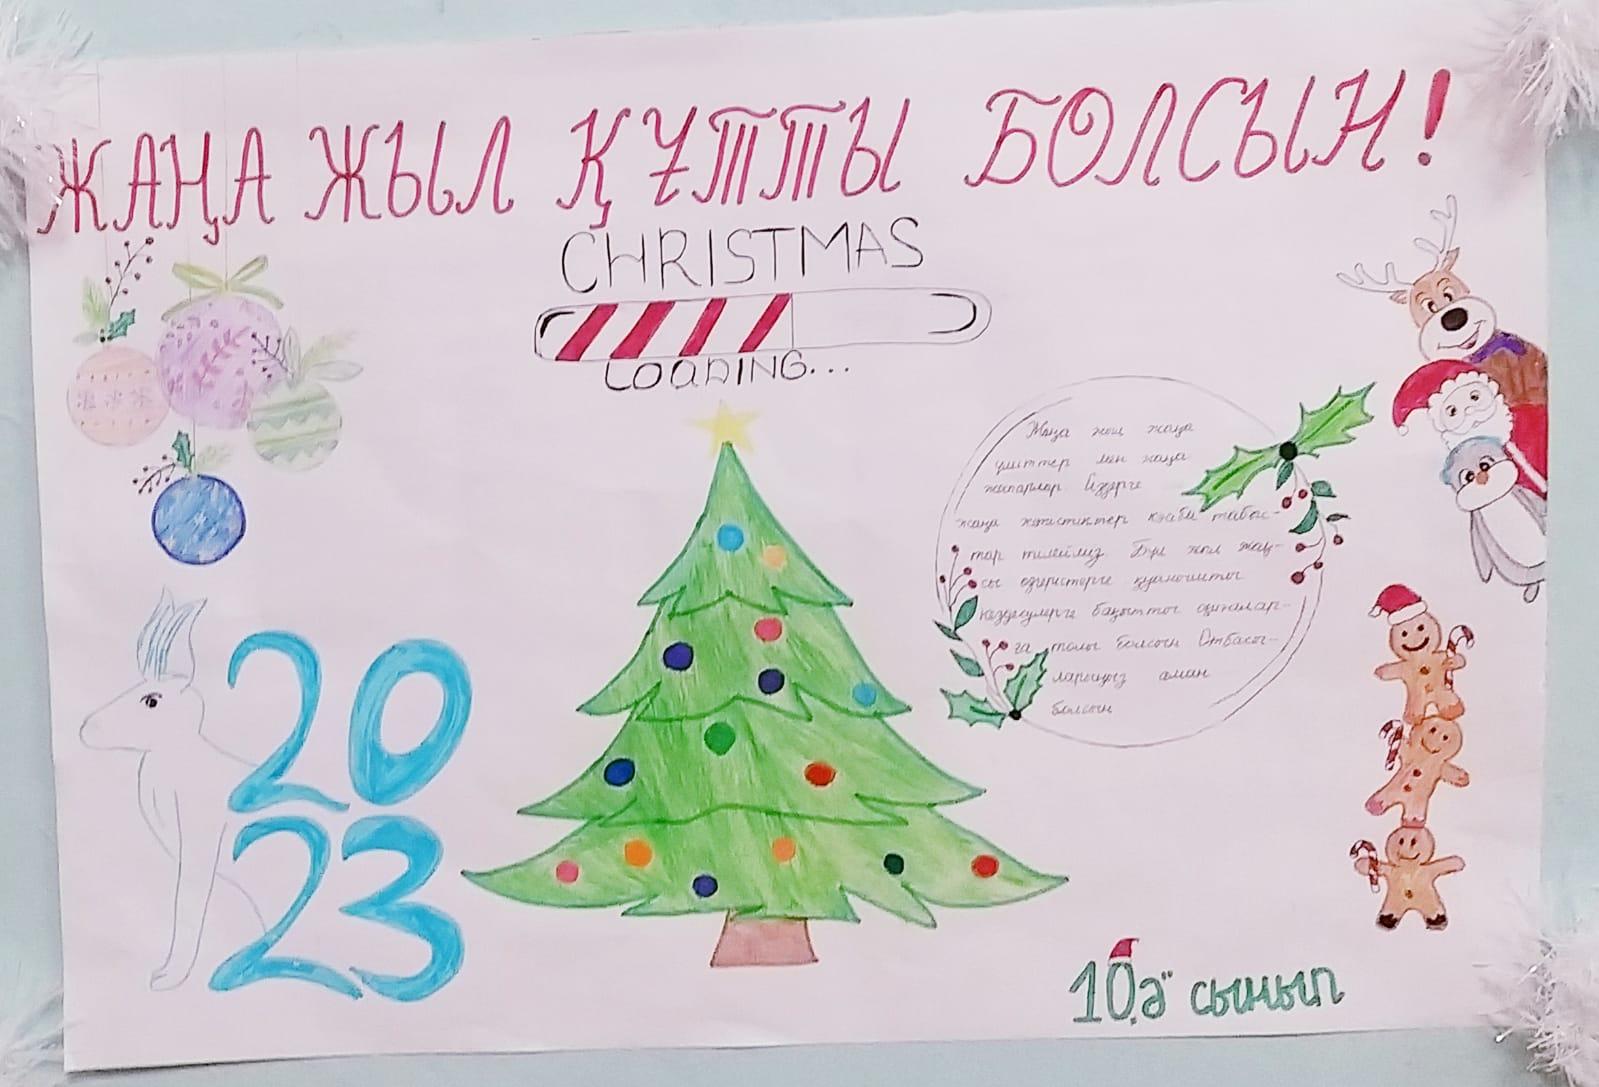 ЖАҢА ЖЫЛ ҚҰТТЫ БОЛСЫН!
CHRISTMAS
LOADING...
Жаңа жыл жаңа
үміттер мен жаңа
жаңа жетістіктер кәсіби табыс-
тар тілейміз. Бұл жыл жақ-
сы өзгерістерге қуанышты
кездесулерге бақытты оқиғалар-
ға толы болсын Отбасы-
ларыңыз аман
болсын
20
23
10 "ә" сынып